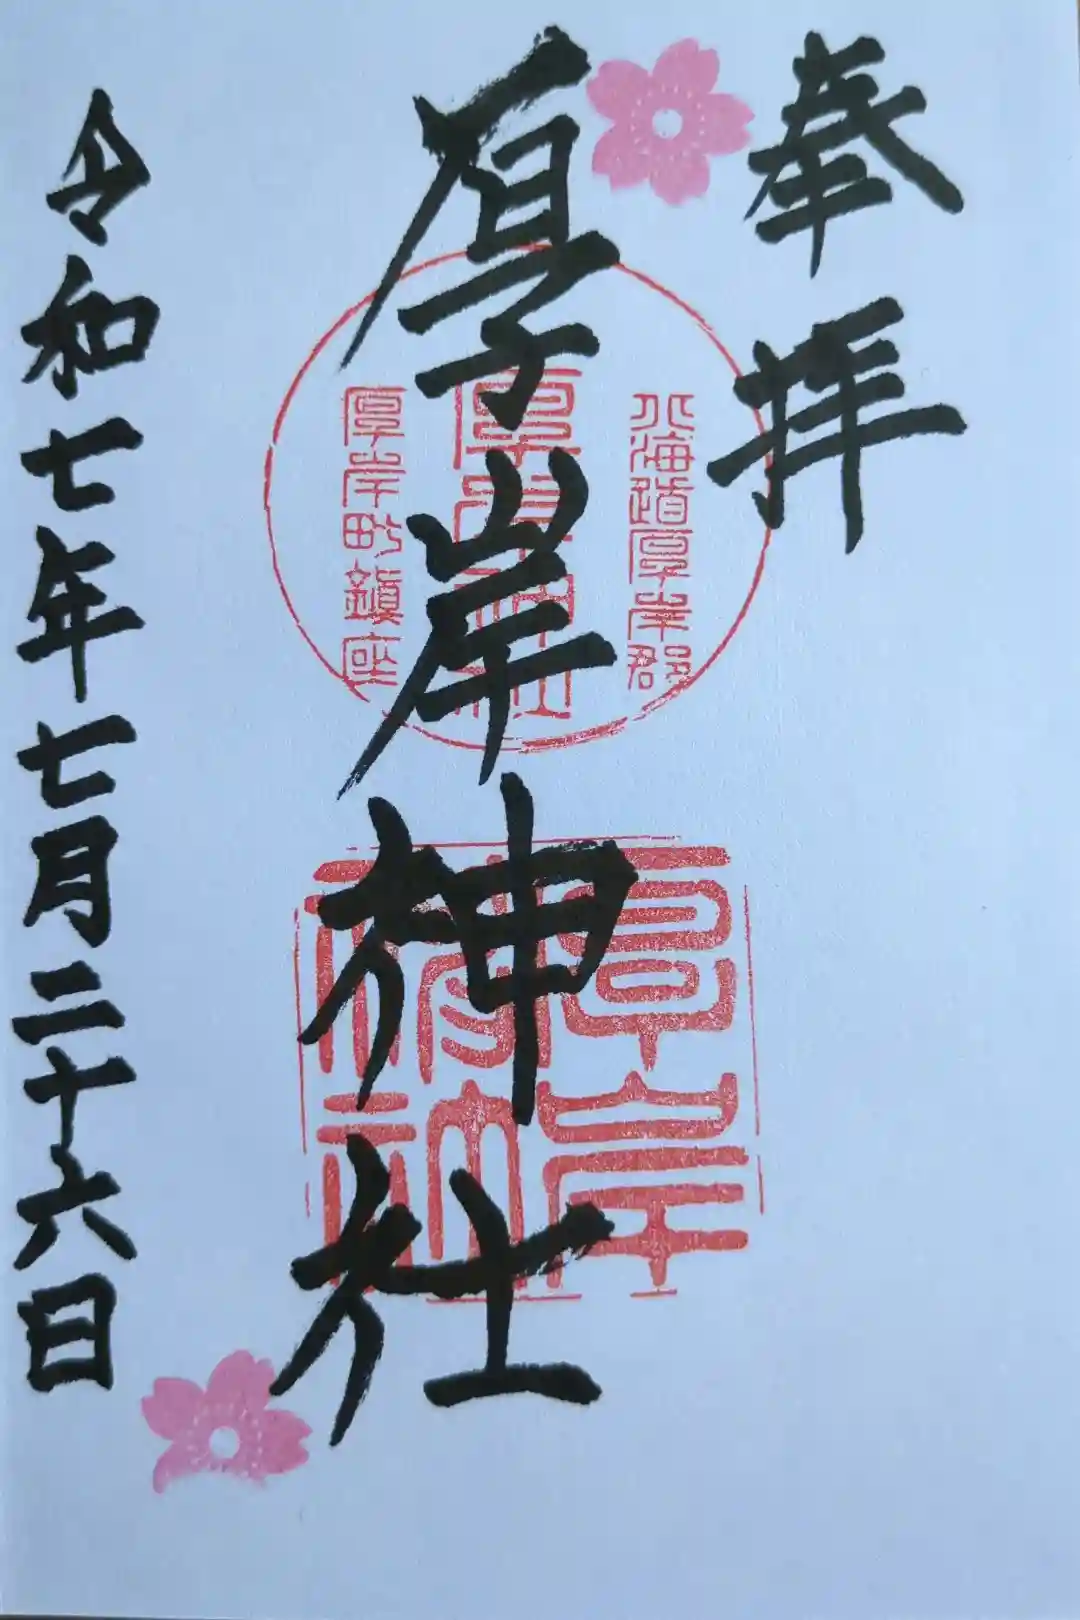 奉拝
北海道厚岸郡
厚岸神社
厚岸町鎮座
厚岸神社
令和七年七月二十六日